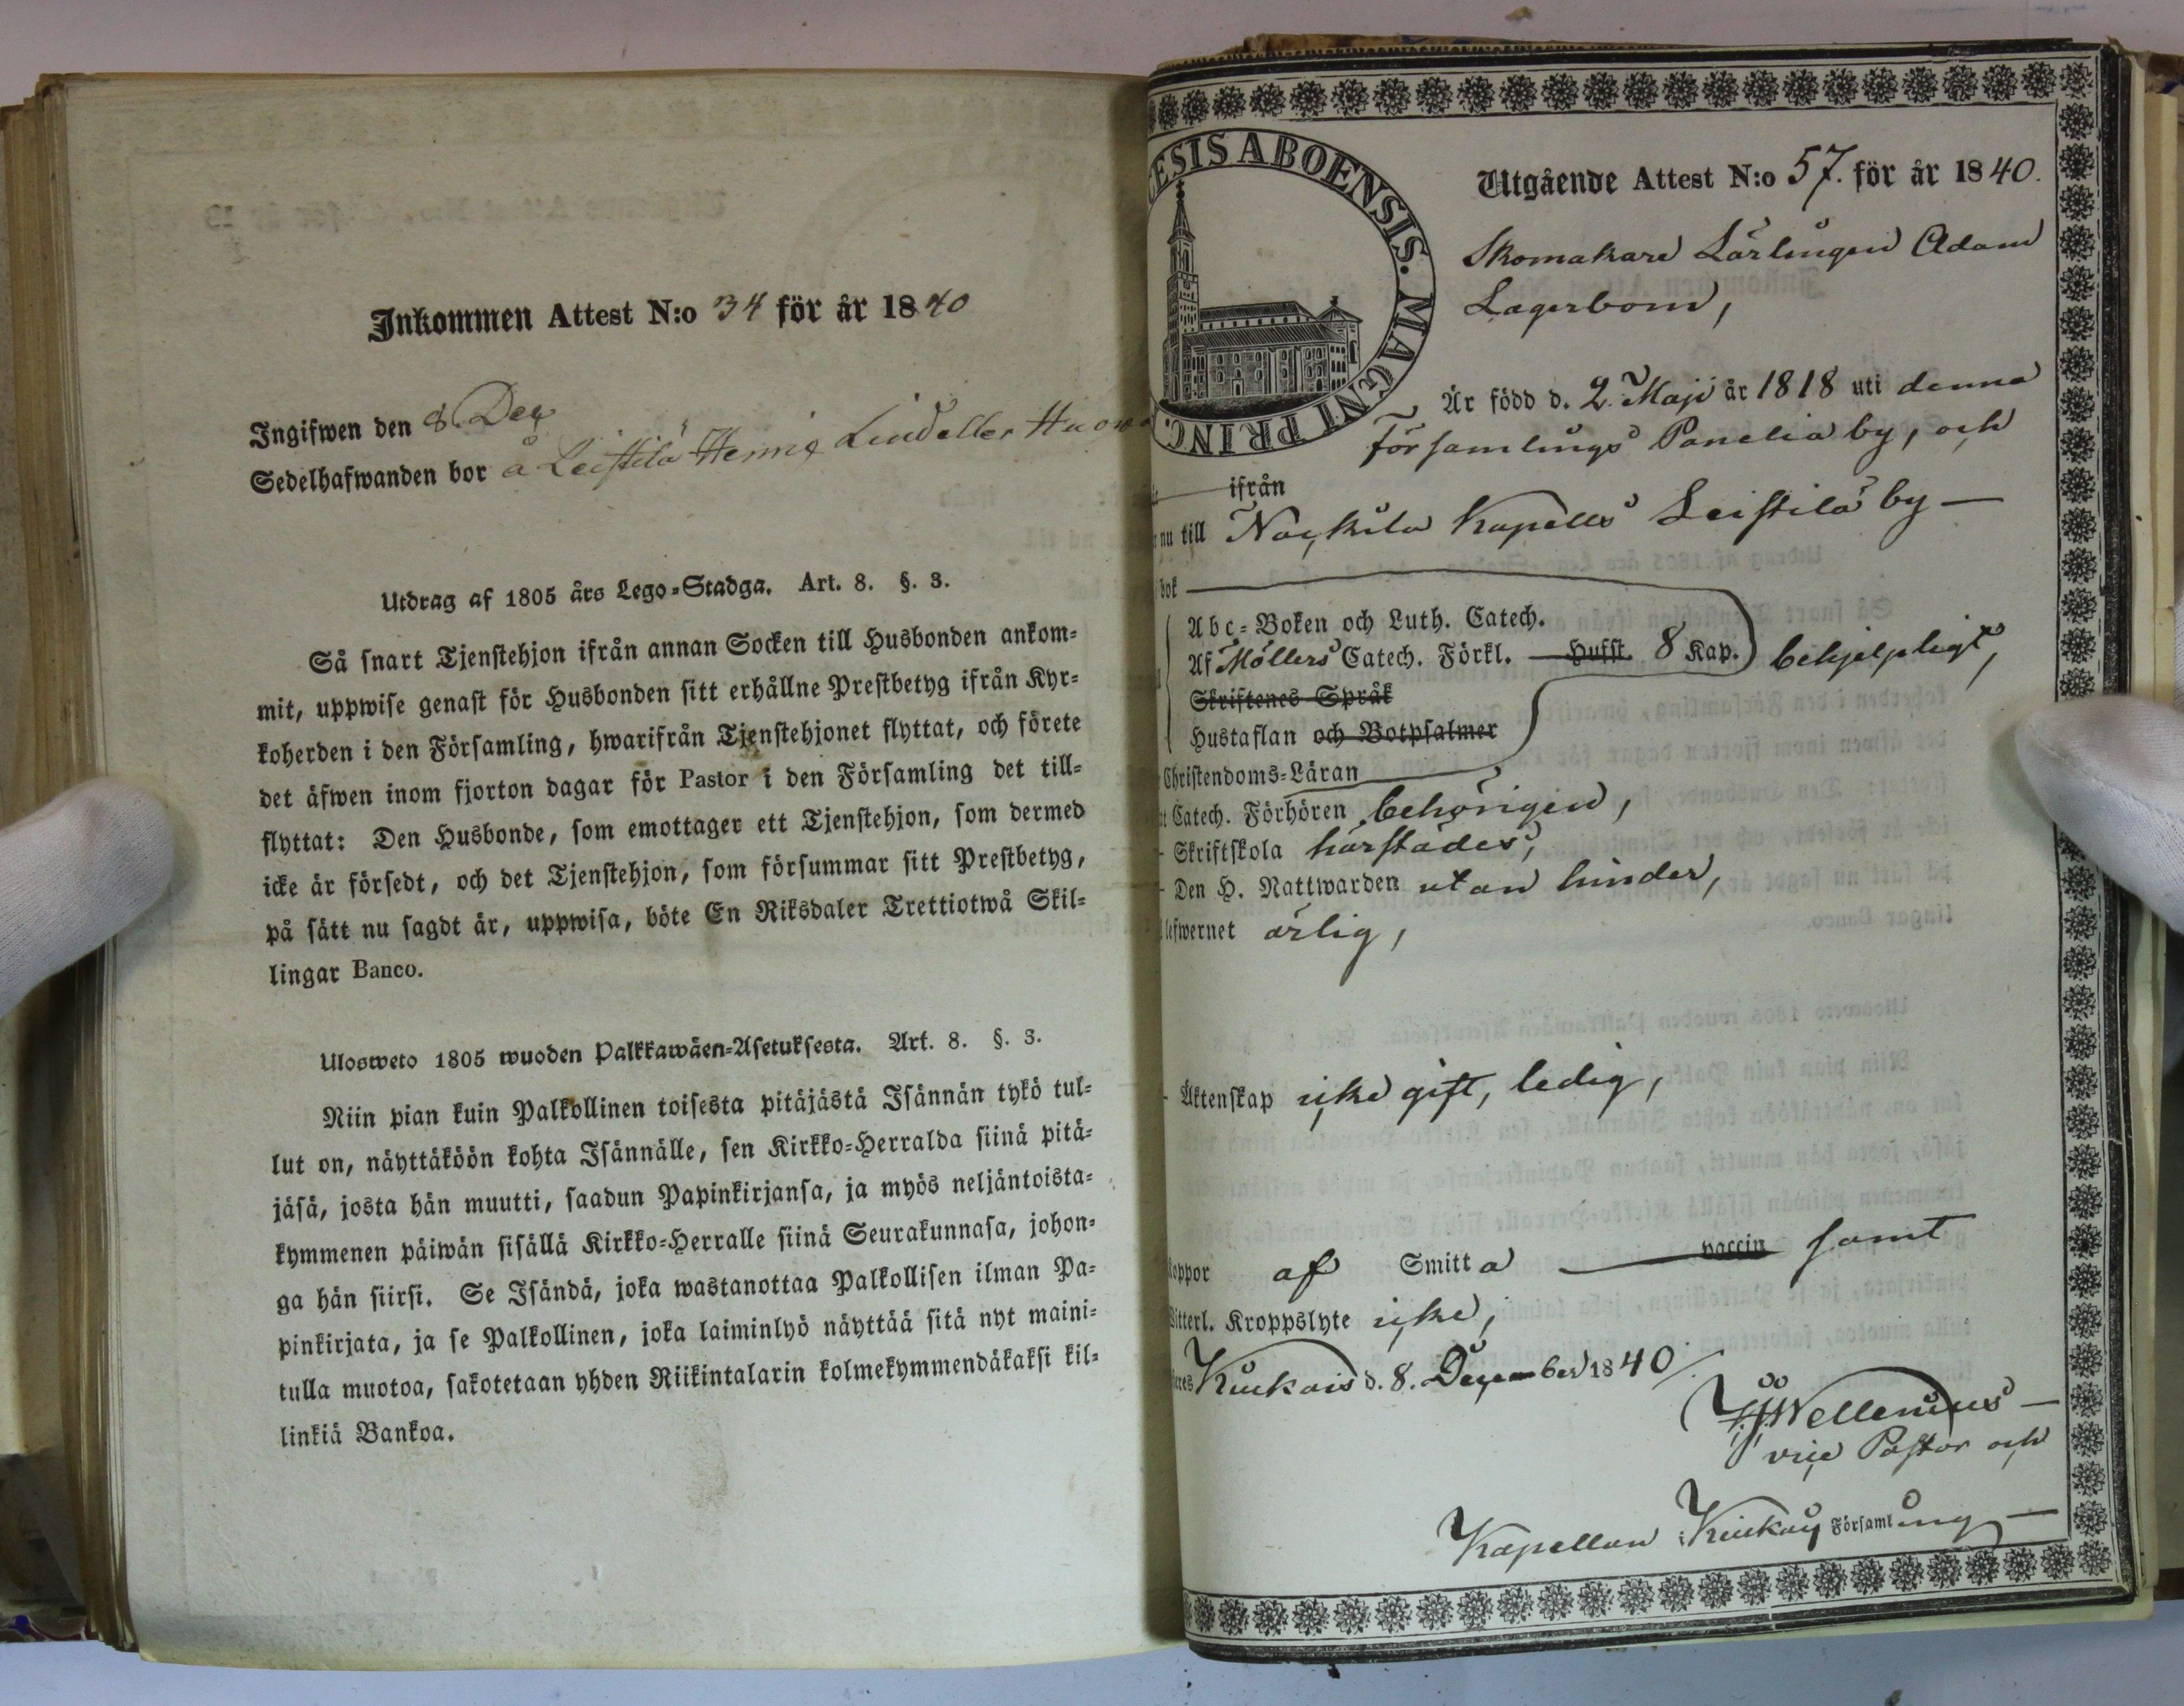 Inkommen Attest N:o 34 för år 1840
Ingifwen den 8 Dec
Sedelhafwanden bor å Leistilä Henric Lindeller
Utdrag af 1805 års Lego-Stadga. Art. 8. §. 3.
Så snart Tjenstehjon ifrån annan Socken till Husbonden ankom-
mit, uppwise genast för Husbonden sitt erhållne Prestbetyg ifrån Kyr-
koherden i den Församling, hwarifrån Tjenstehjonet flyttat, och förete
det äfwen inom fjorton dagar för Pastor i den Församling det till-
flyttat: Den Husbonde, som emottager ett Tjenstehjon, som dermed
icke är försedt, och det Tjenstehjon, som försummar sitt Prestbetyg,
på sätt nu sagdt är, uppwisa, böte En Riksdaler Trettiotwå Skil-
lingar Banco.
Ulosweto 1805 wuoden Palkkawäen-Asetuksesta. Art. 8. §. 3.
Niin pian kuin Palkollinen toisesta pitäjästä Isännän tykö tul-
lut on, näyttäköön kohta Isännälle, sen Kirkko-Herralda siinä pitä-
jäsä, josta hän muutti, saadun Papinkirjansa, ja myös neljäntoista-
kymmenen päiwän sisällä Kirkko-Herralle siinä Seurakunnasa, johon-
ga hän siirsi. Se Isändä, joka wastanottaa Palkollisen ilman Pa-
pinkirjata, ja se Palkollinen, joka laiminlyö näyttää sitä nyt maini-
tulla muotoa, sakotetaan yhden Riikintalarin kolmekymmendäkaksi kil-
linkiä Bankoa.
ESIS ABOENSIS. MAGNI PRINC.
Utgående Attest N:o 57. för år 1840.
Skomakare Lärlingen Adam
Lagerbom,
Är född d. 2 Maji år 1818 uti denna
församlings Panelia by, och
ifrån
nu till Nackila Kapells Leistilä by —
bok
Abc-Boken och Luth. Catech.
Af Möllers Catech. Förkl. Hufst. 8 Kap. behjelpligt,
Skriftenes Språk
Hustaflan och Botpsalmer
Christendoms-Läran
Catech. Förhören behörigen,
Skriftskola härstädes,
Den H. Nattwarden utan hinder,
lefwernet ärlig,
Äktenskap icke gift, ledig,
koppor af Smitta vaccin samt
Witterl. Kroppslyte icke,
Kiukais d. 8. December 1840
Wellenius —
vice Pastor och
Kapellan i Kiukais Församling —